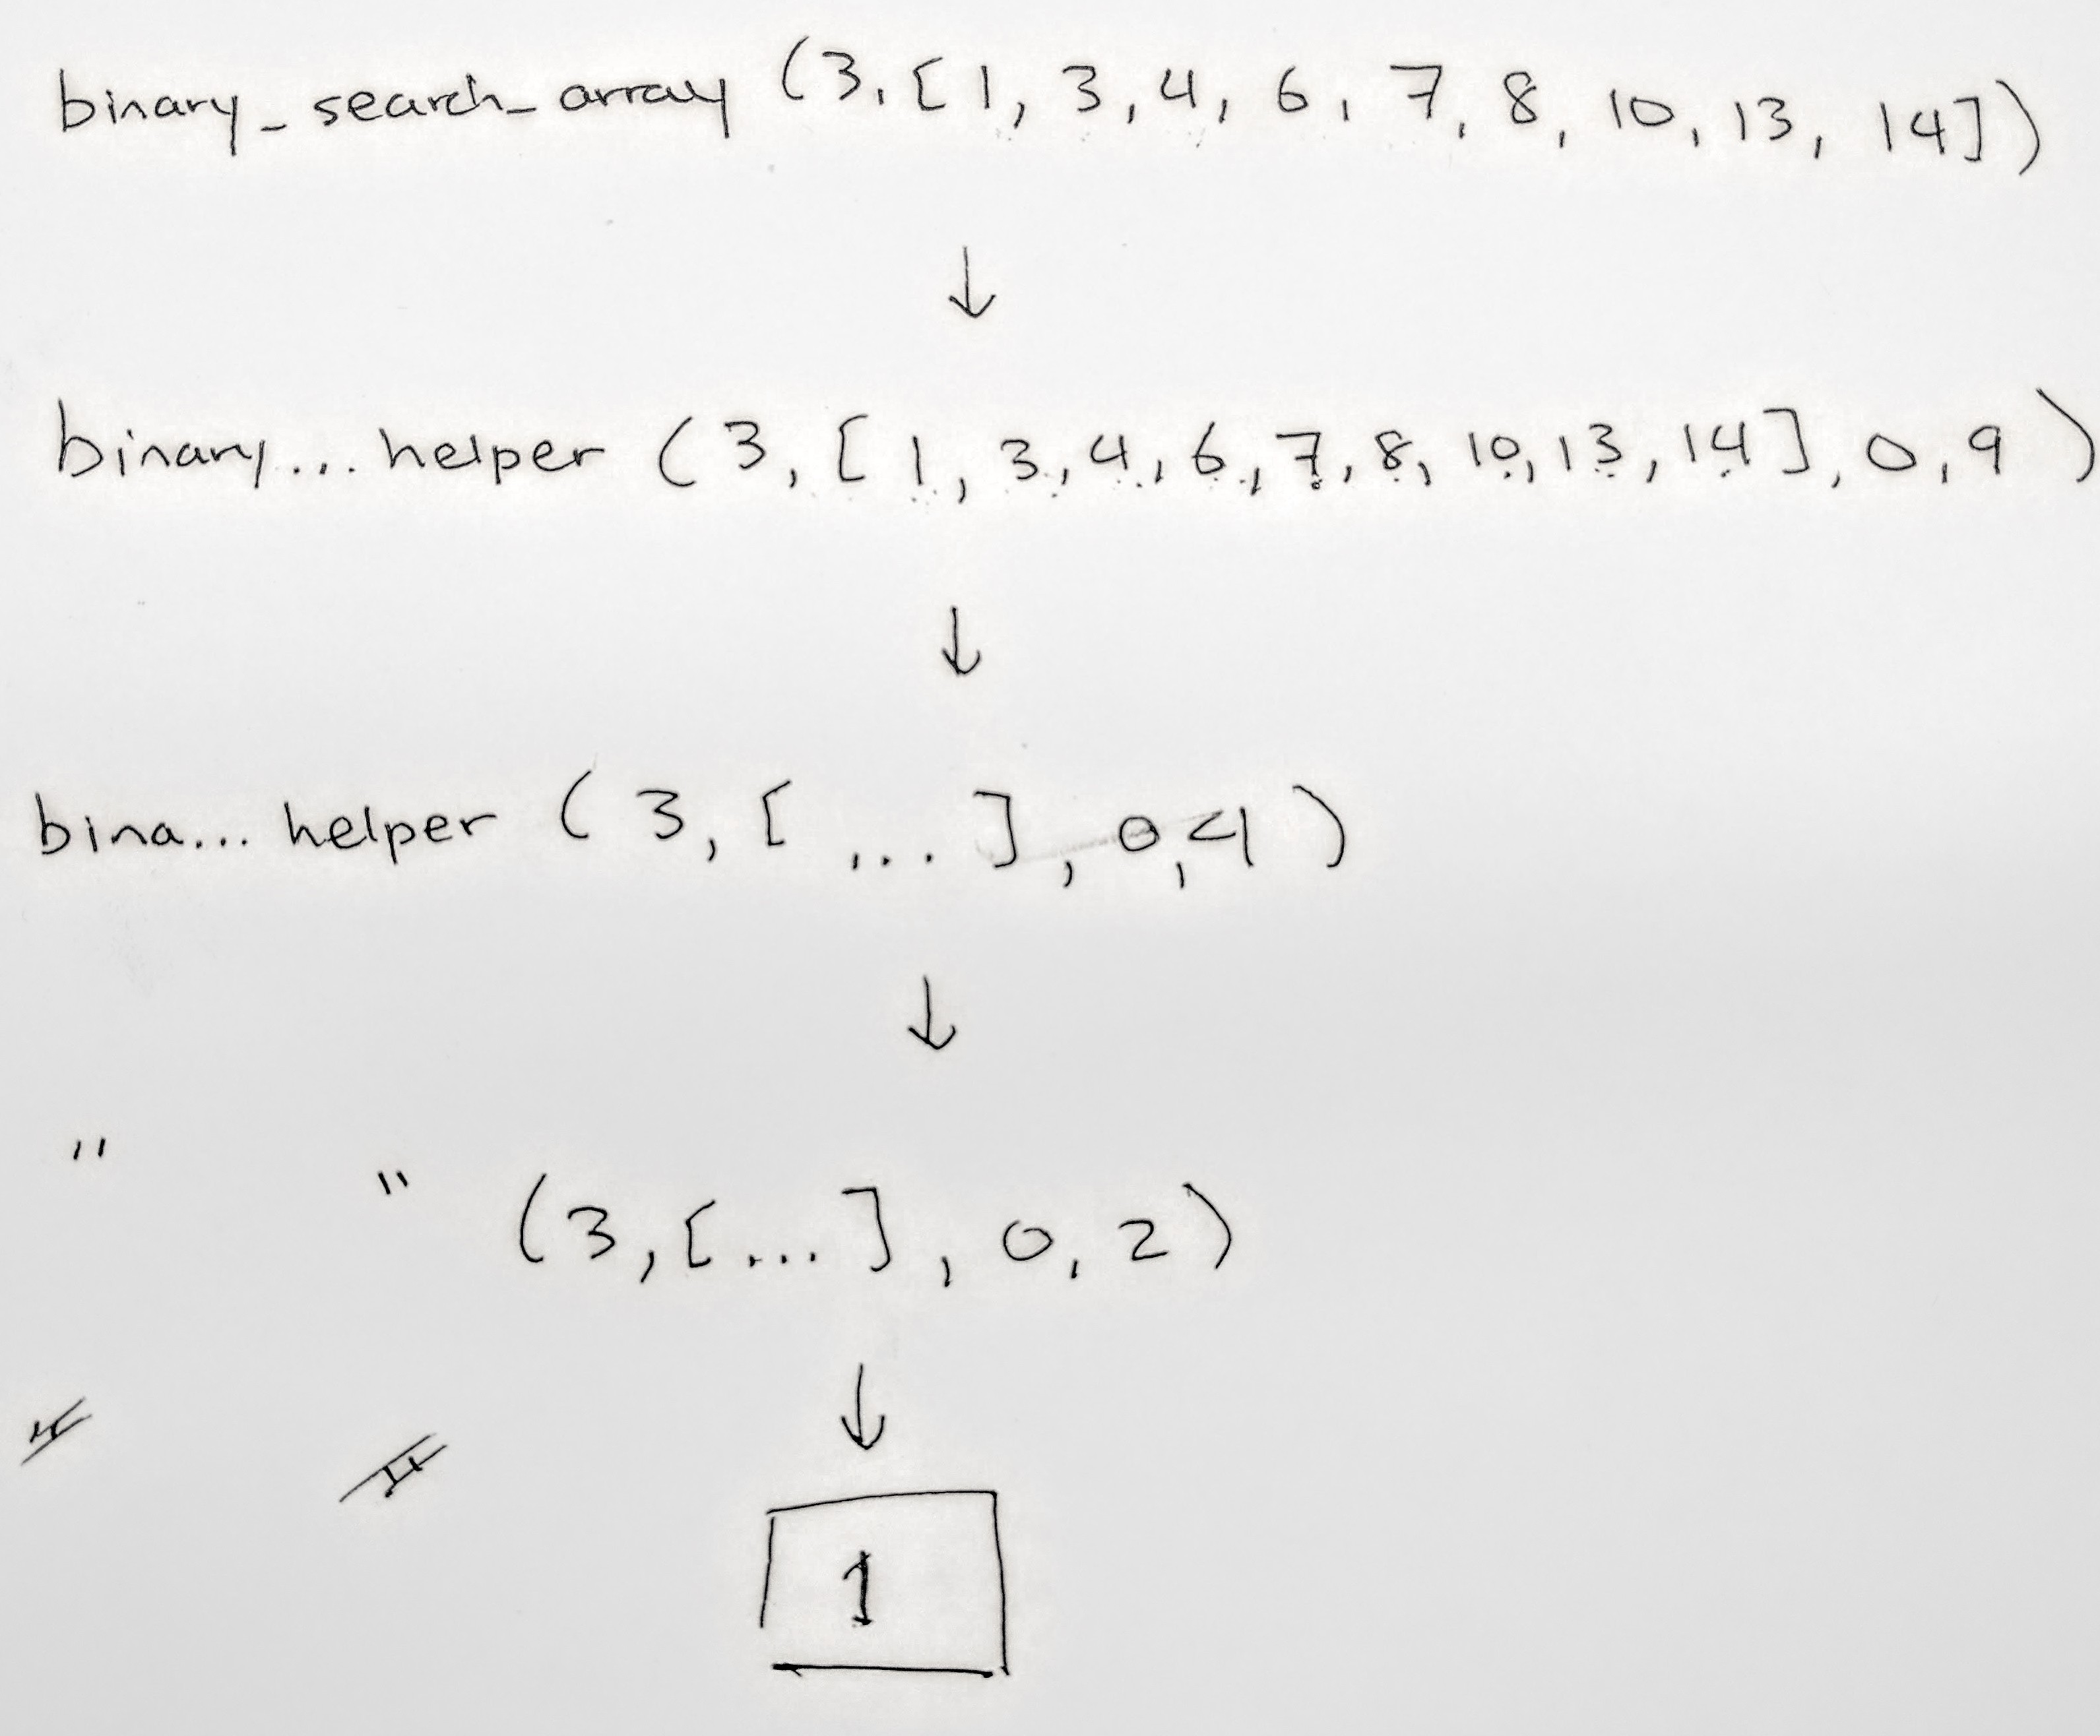 binary_search_array (3, [1, 3, 4, 6, 7, 8, 10, 13, 14])
↓
binary... helper (3, [1, 3, 4, 6, 7, 8, 10, 13, 14], 0, 9)
↓
bina... helper (3, [ ... ], 0, 4)
↓
" " (3, [...], 0, 2)
↓
1